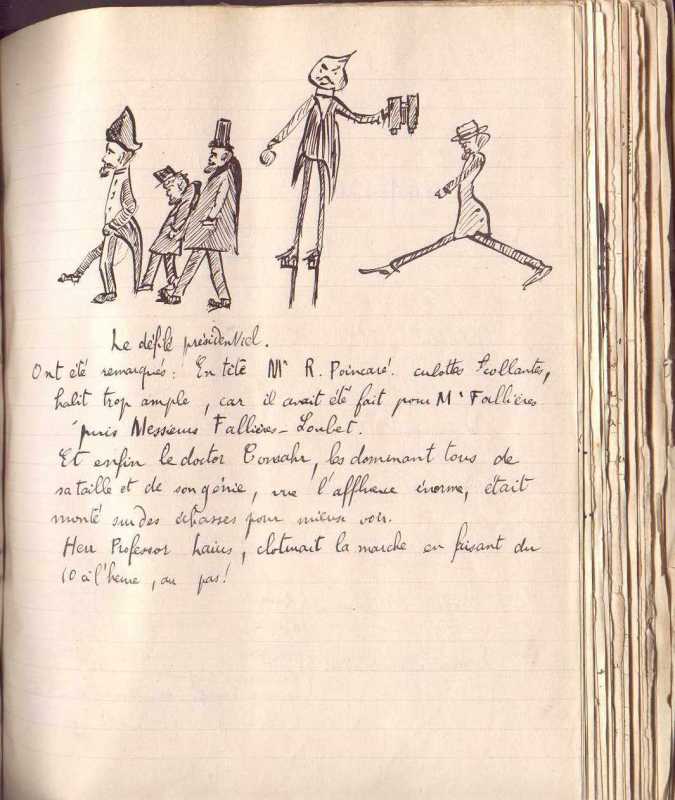 Le défilé présidentiel.
Ont été remarqués : En tête Mr R. Poincaré. culottes collantes,
habit trop ample, car il avait été fait pour Mr Fallières
puis Messieurs Fallières - Loubet.
Et enfin le doctor , les dominant tous de
sa taille et de son génie, vue l'affluence énorme, était
monté sur des échasses pour mieux voir.
Herr Professor Laïus, cloturait la marche en faisant du
10 à l'heure, au pas !